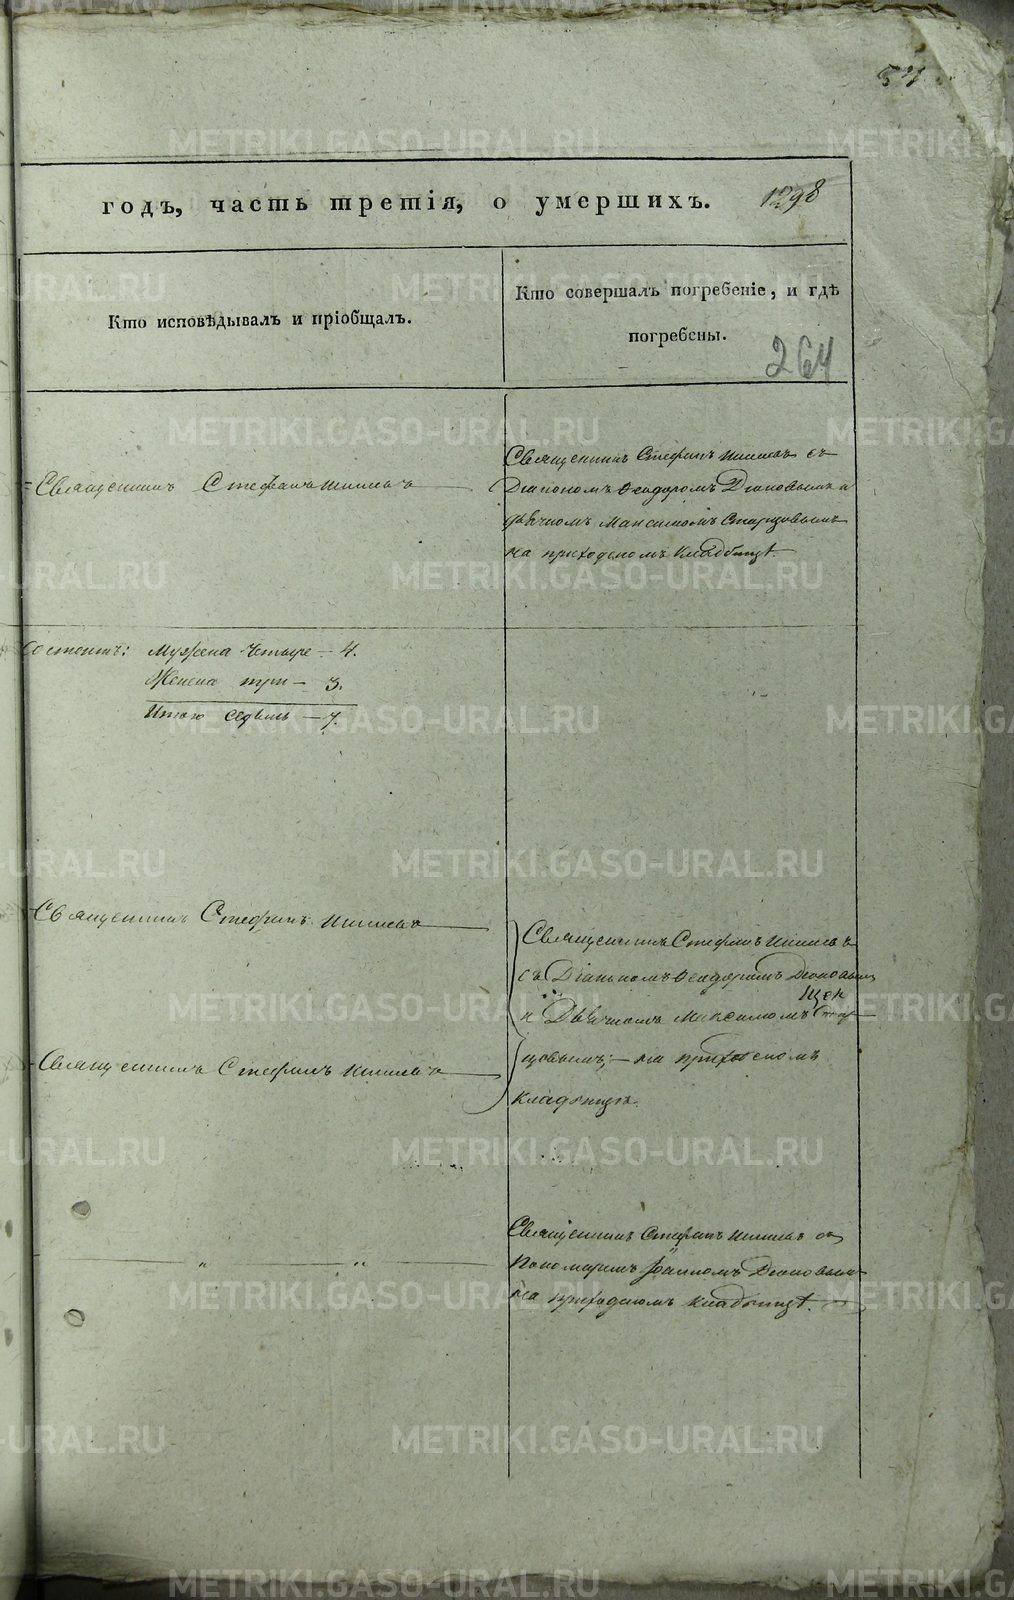 57
годъ, часть третія, о умершихъ. 1298
Кто исповѣдывалъ и пріобщалъ.
Кто совершалъ погребеніе, и гдѣ
погребены.
264
Священникъ Стефанъ
Священникъ Стефанъ съ
Діакономъ Феодоромъ Дьяковымъ и
дьячкомъ Максимомъ Старцовымъ
на приходскомъ кладбищѣ.
Состоитъ: Мужеска четыре – 4.
Женска три – 3.
Итого седмь – 7.
Священникъ Стефанъ
Священникъ Стефанъ
съ Діакономъ Феодоромъ Дьяковымъ
и Дьячкомъ Максимомъ Стар-
цовымъ; – на приходскомъ
кладбищѣ.
Священникъ Стефанъ
Священникъ Стефанъ съ
Пономаремъ Дьяковымъ
на приходскомъ кладбищѣ.
METRIKI.GASO-URAL.RU